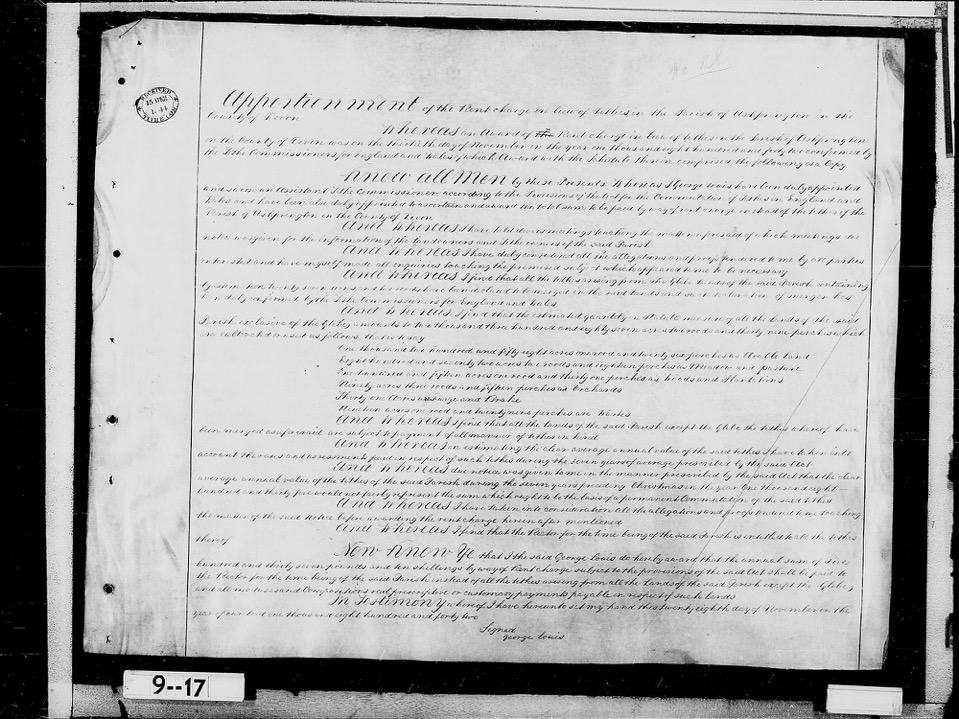 RECEIVED
TITHE COM
Apportionment of the Rent charge in lieu of tithes in the Parish of Ashprington in the
County of Devon
Whereas an Award of the Rent charge in lieu of tithes in the Parish of Ashprington
in the County of Devon was on the day of November in the year one thousand eight hundred and forty two confirmed by
the Tithe Commissioners for England and Wales of which Award with the Schedule therein comprised the following is a Copy
Know all Men by these Presents Whereas I George Louis have been duly appointed
and sworn an Assistant Tithe Commissioner according to the Provisions of the Act for the Commutation of Tithes in England and
Wales and have been also duly appointed to ascertain and award the total sum to be paid by way of rent charge instead of the tithes of the
Parish of Ashprington in the County of Devon
And Whereas I have held divers meetings touching the matter aforesaid of which meetings due
notice was given for the information of the landowners and tithe owners of the said Parish
And Whereas I have duly considered all the allegations and proofs tendered to me by all parties
interested and have myself made all enquiries touching the premises subject which appeared to me to be necessary
And Whereas I find that all the tithes arising from the Glebe lands of the said Parish containing
by estimation twenty seven acres and two roods have been declared to be merged in the said lands and such declaration of merger has
been duly confirmed by the Tithe Commissioners for England and Wales
And Whereas I find that the estimated quantity in statute measure of all the lands of the said
Parish exclusive of the Glebe, amounts to two thousand three hundred and eighty seven acres two roods and thirty nine perches which
are cultivated or used as follows, that is to say
One thousand two hundred and fifty eight acres one rood and twenty six perches as Arable land
Eight hundred and seventy two acres two roods and eighteen perches as Meadow and pasture
One hundred and fifteen acres one rood and thirty one perches as Woods and Plantations
Ninety acres three roods and fifteen perches as Orchards
Thirty one Acres as Furze and Brake
Nineteen acres one rood and twenty nine perches are Wastes
And Whereas I find that all the lands of the said Parish except the Glebe the tithes whereof have
been merged as aforesaid are subject to payment of all manner of tithes in kind
And Whereas in estimating the clear average annual value of the said tithes I have taken into
account the rates and assessments paid in respect of such tithes during the seven years of average prescribed by the said Act
And Whereas due notice was given to me in the manner prescribed by the said Act that the clear
average annual value of the tithes of the said Parish during the seven years preceding Christmas in the year One thousand eight
hundred and thirty five would not fairly represent the sum which ought to be the basis of a permanent Commutation of the said tithes
And Whereas I have taken into consideration all the allegations and proofs tendered to me touching
the matter of the said Notice before awarding the rent charge herein after mentioned
And Whereas I find that the Rector for the time being of the said Parish is entitled to all the tithes
thereof
Now Know Ye that I the said George Louis do hereby award that the annual sum of Five
hundred and thirty seven pounds and ten shillings by way of Rent charge subject to the provisions of the said Act shall be paid to
the Rector for the time being of the said Parish instead of all the tithes arising from all the Lands of the said Parish except the Glebe,
and all moduses and Compositions real prescriptive or customary payments payable in respect of such lands
In Testimony whereof I have hereunto set my hand this twenty eighth day of November in the
year of our Lord one thousand eight hundred and forty two
Signed
George Louis
9--17